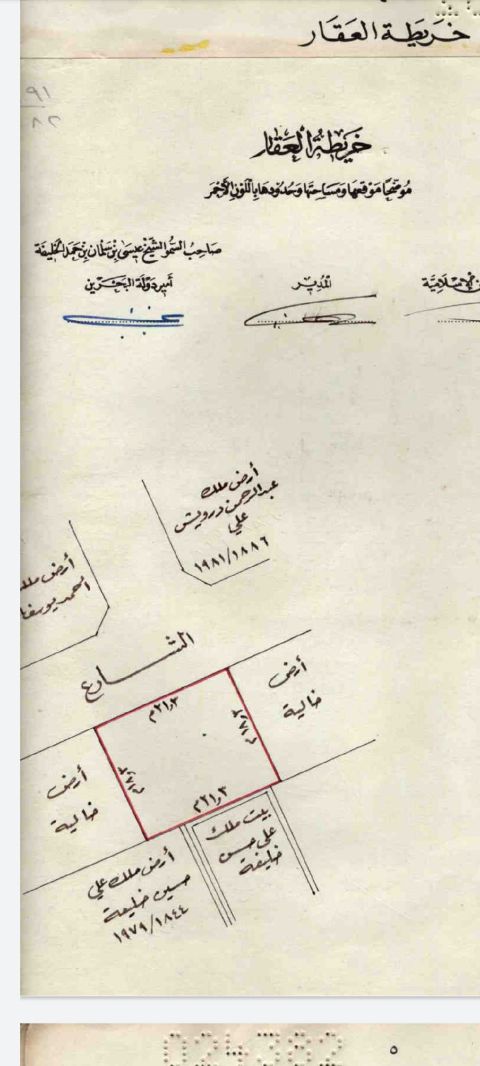 خريطة العقار
٩١
٨٢
خريطة العقار
موضحا موقعها ومساحتها وحدودها باللون الأحمر
صاحب السمو الشيخ عيسى بن سلمان بن حمد الخليفة
أمير دولة البحرين
المدير
أرض ملك
عبدالرحمن درويش
علي
١٩٨١/١٨٨٦
أرض ملك
احمد يوسف
الشارع
٢١٫٣م
أرض
خالية
أرض
خالية
٢١٫٣م
بيت ملك
علي حسن
خليفة
أرض ملك علي
حسين خليفة
١٩٧٩/١٨٤٤
٥